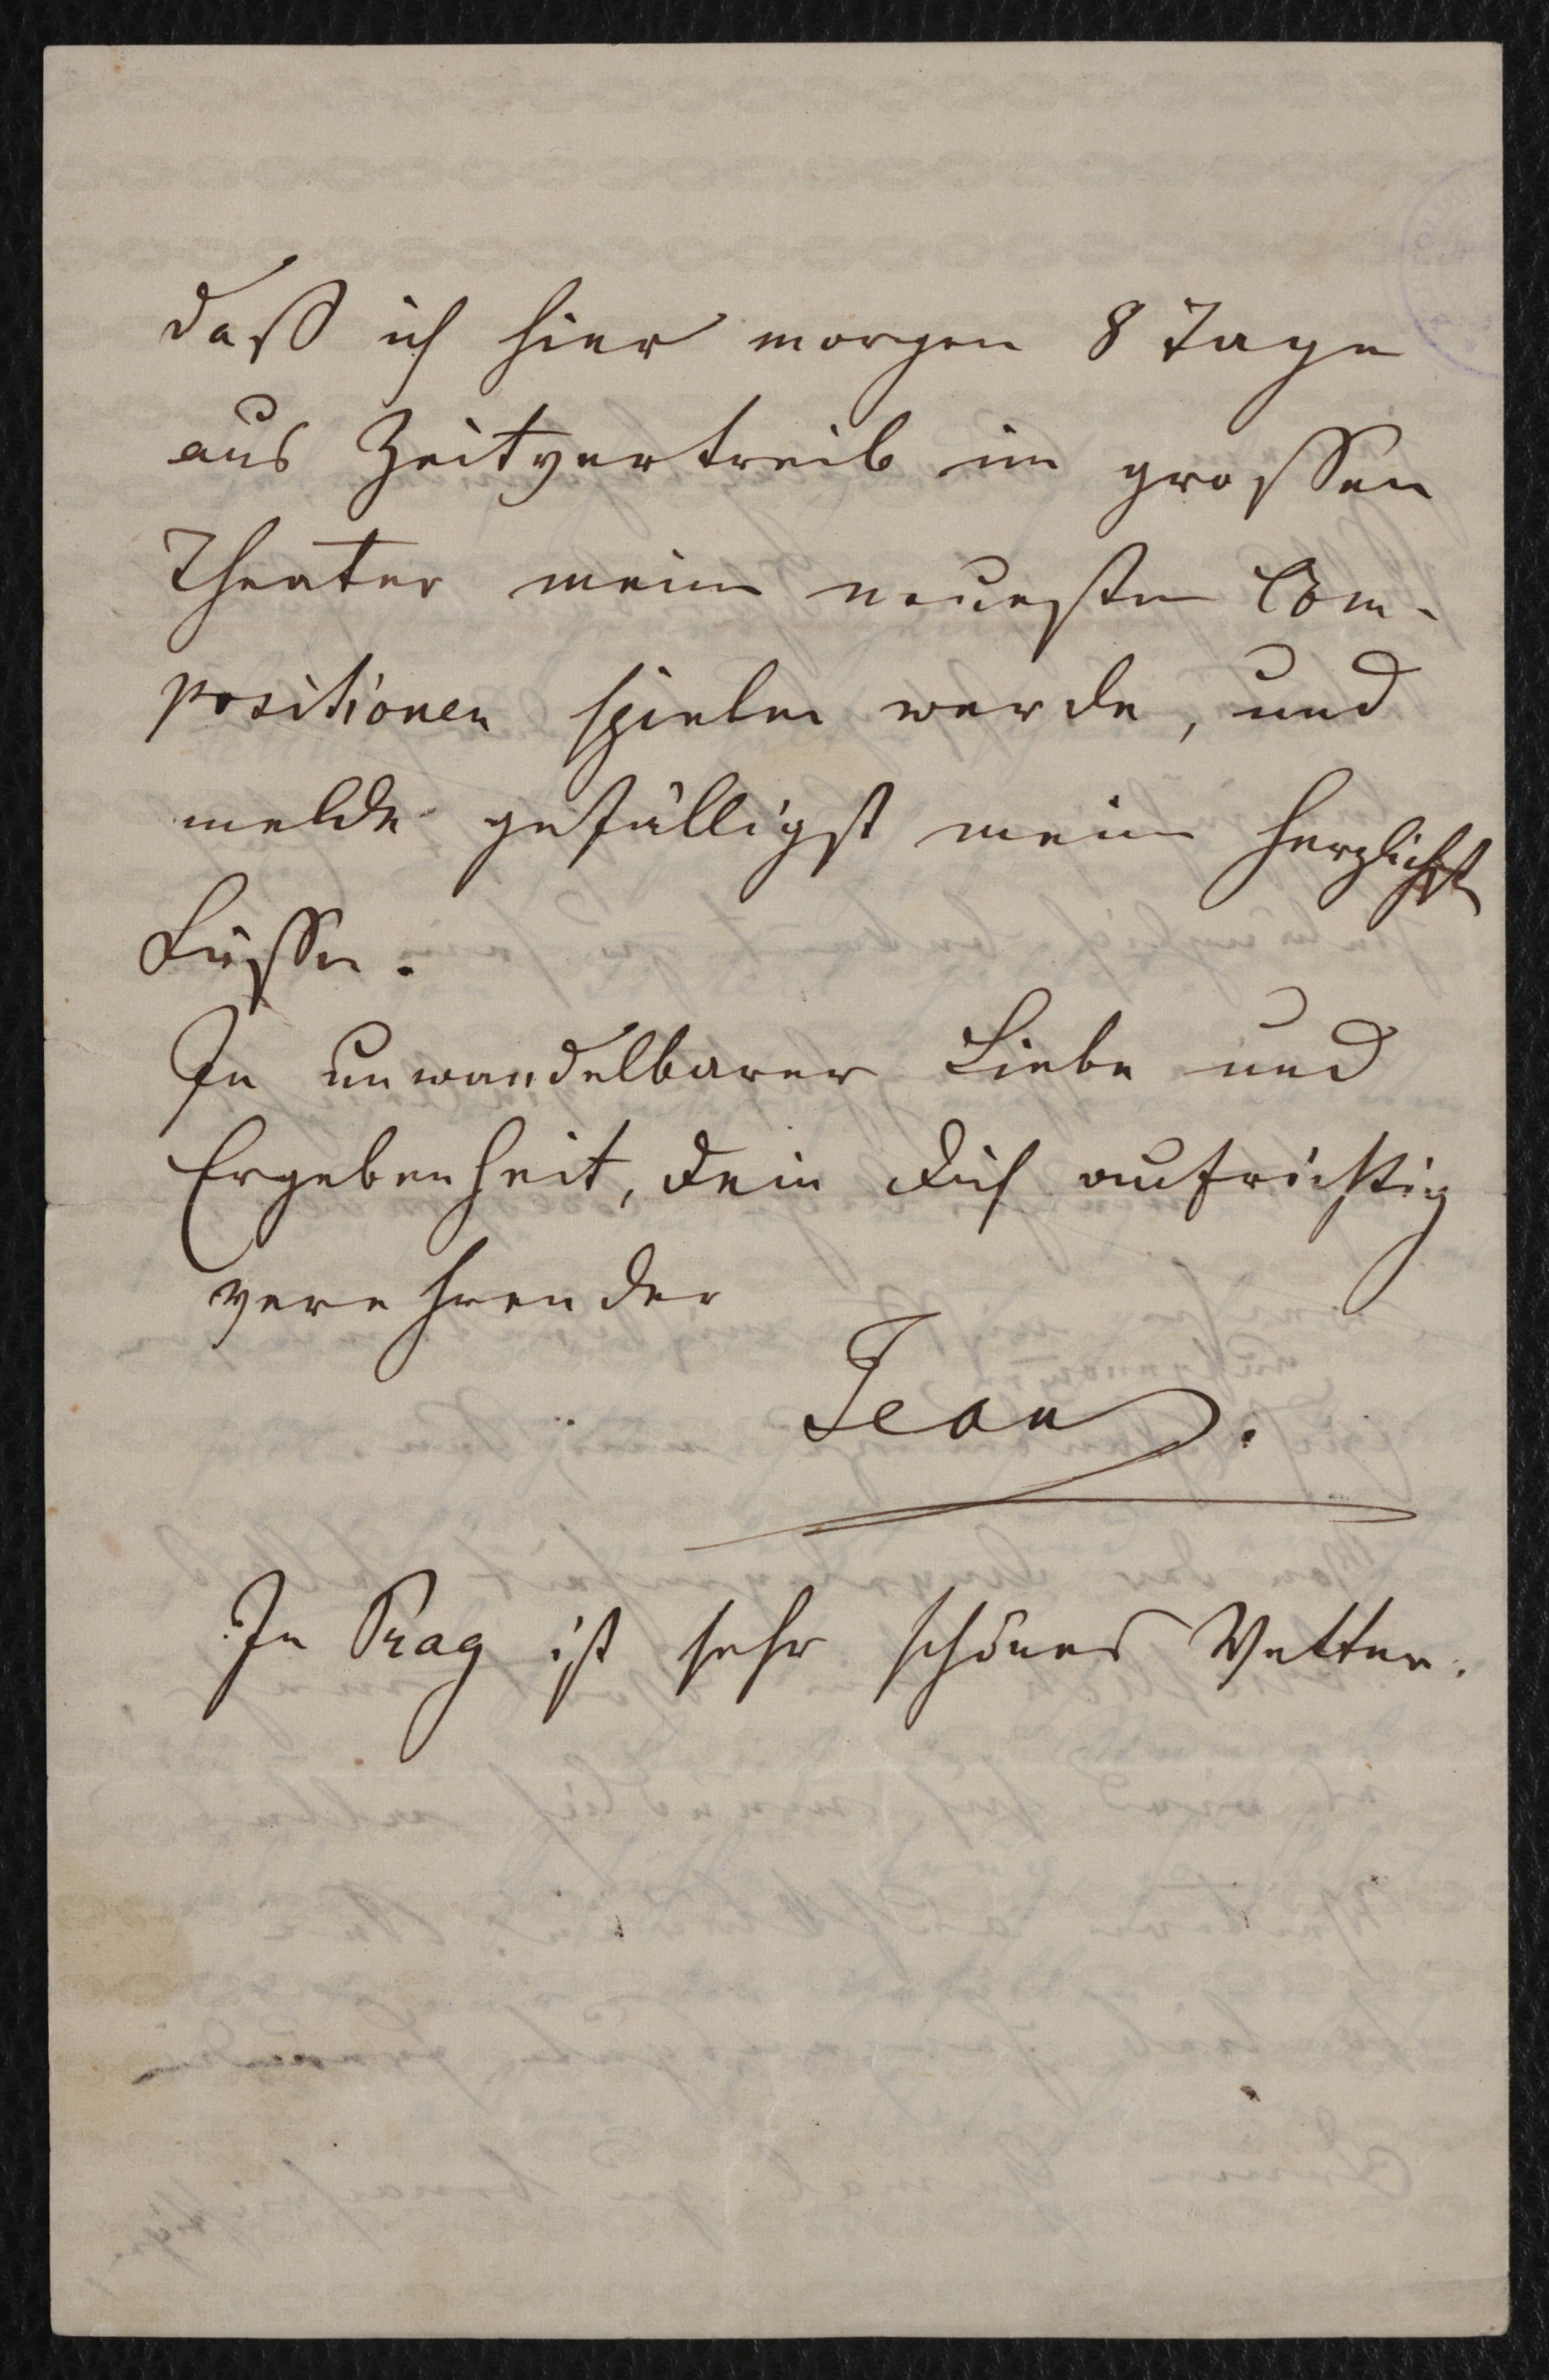 daß ich hier morgen 8 Tage
aus Zeitvertreib im grossen
Theater meine neuesten Com-
positionen spielen werde, und
melde gefälligst meine herzlichst
Küsse.
In unwandelbarer Liebe und
Ergebenheit, dein dich aufrichtig
verehrender
Jean.
In Prag ist sehr schönes Wetter.